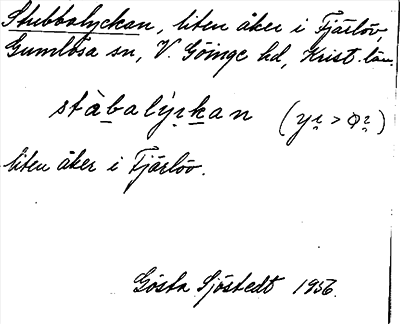 Stubbalyckan, liten åker i Fjärlöv,
Gumlösa sn, V. Göinge hd, Krist. län.
stàbalýɪkan (yɪ > øɪ)
liten åker i Fjärlöv.
Gösta Sjöstedt 1956.